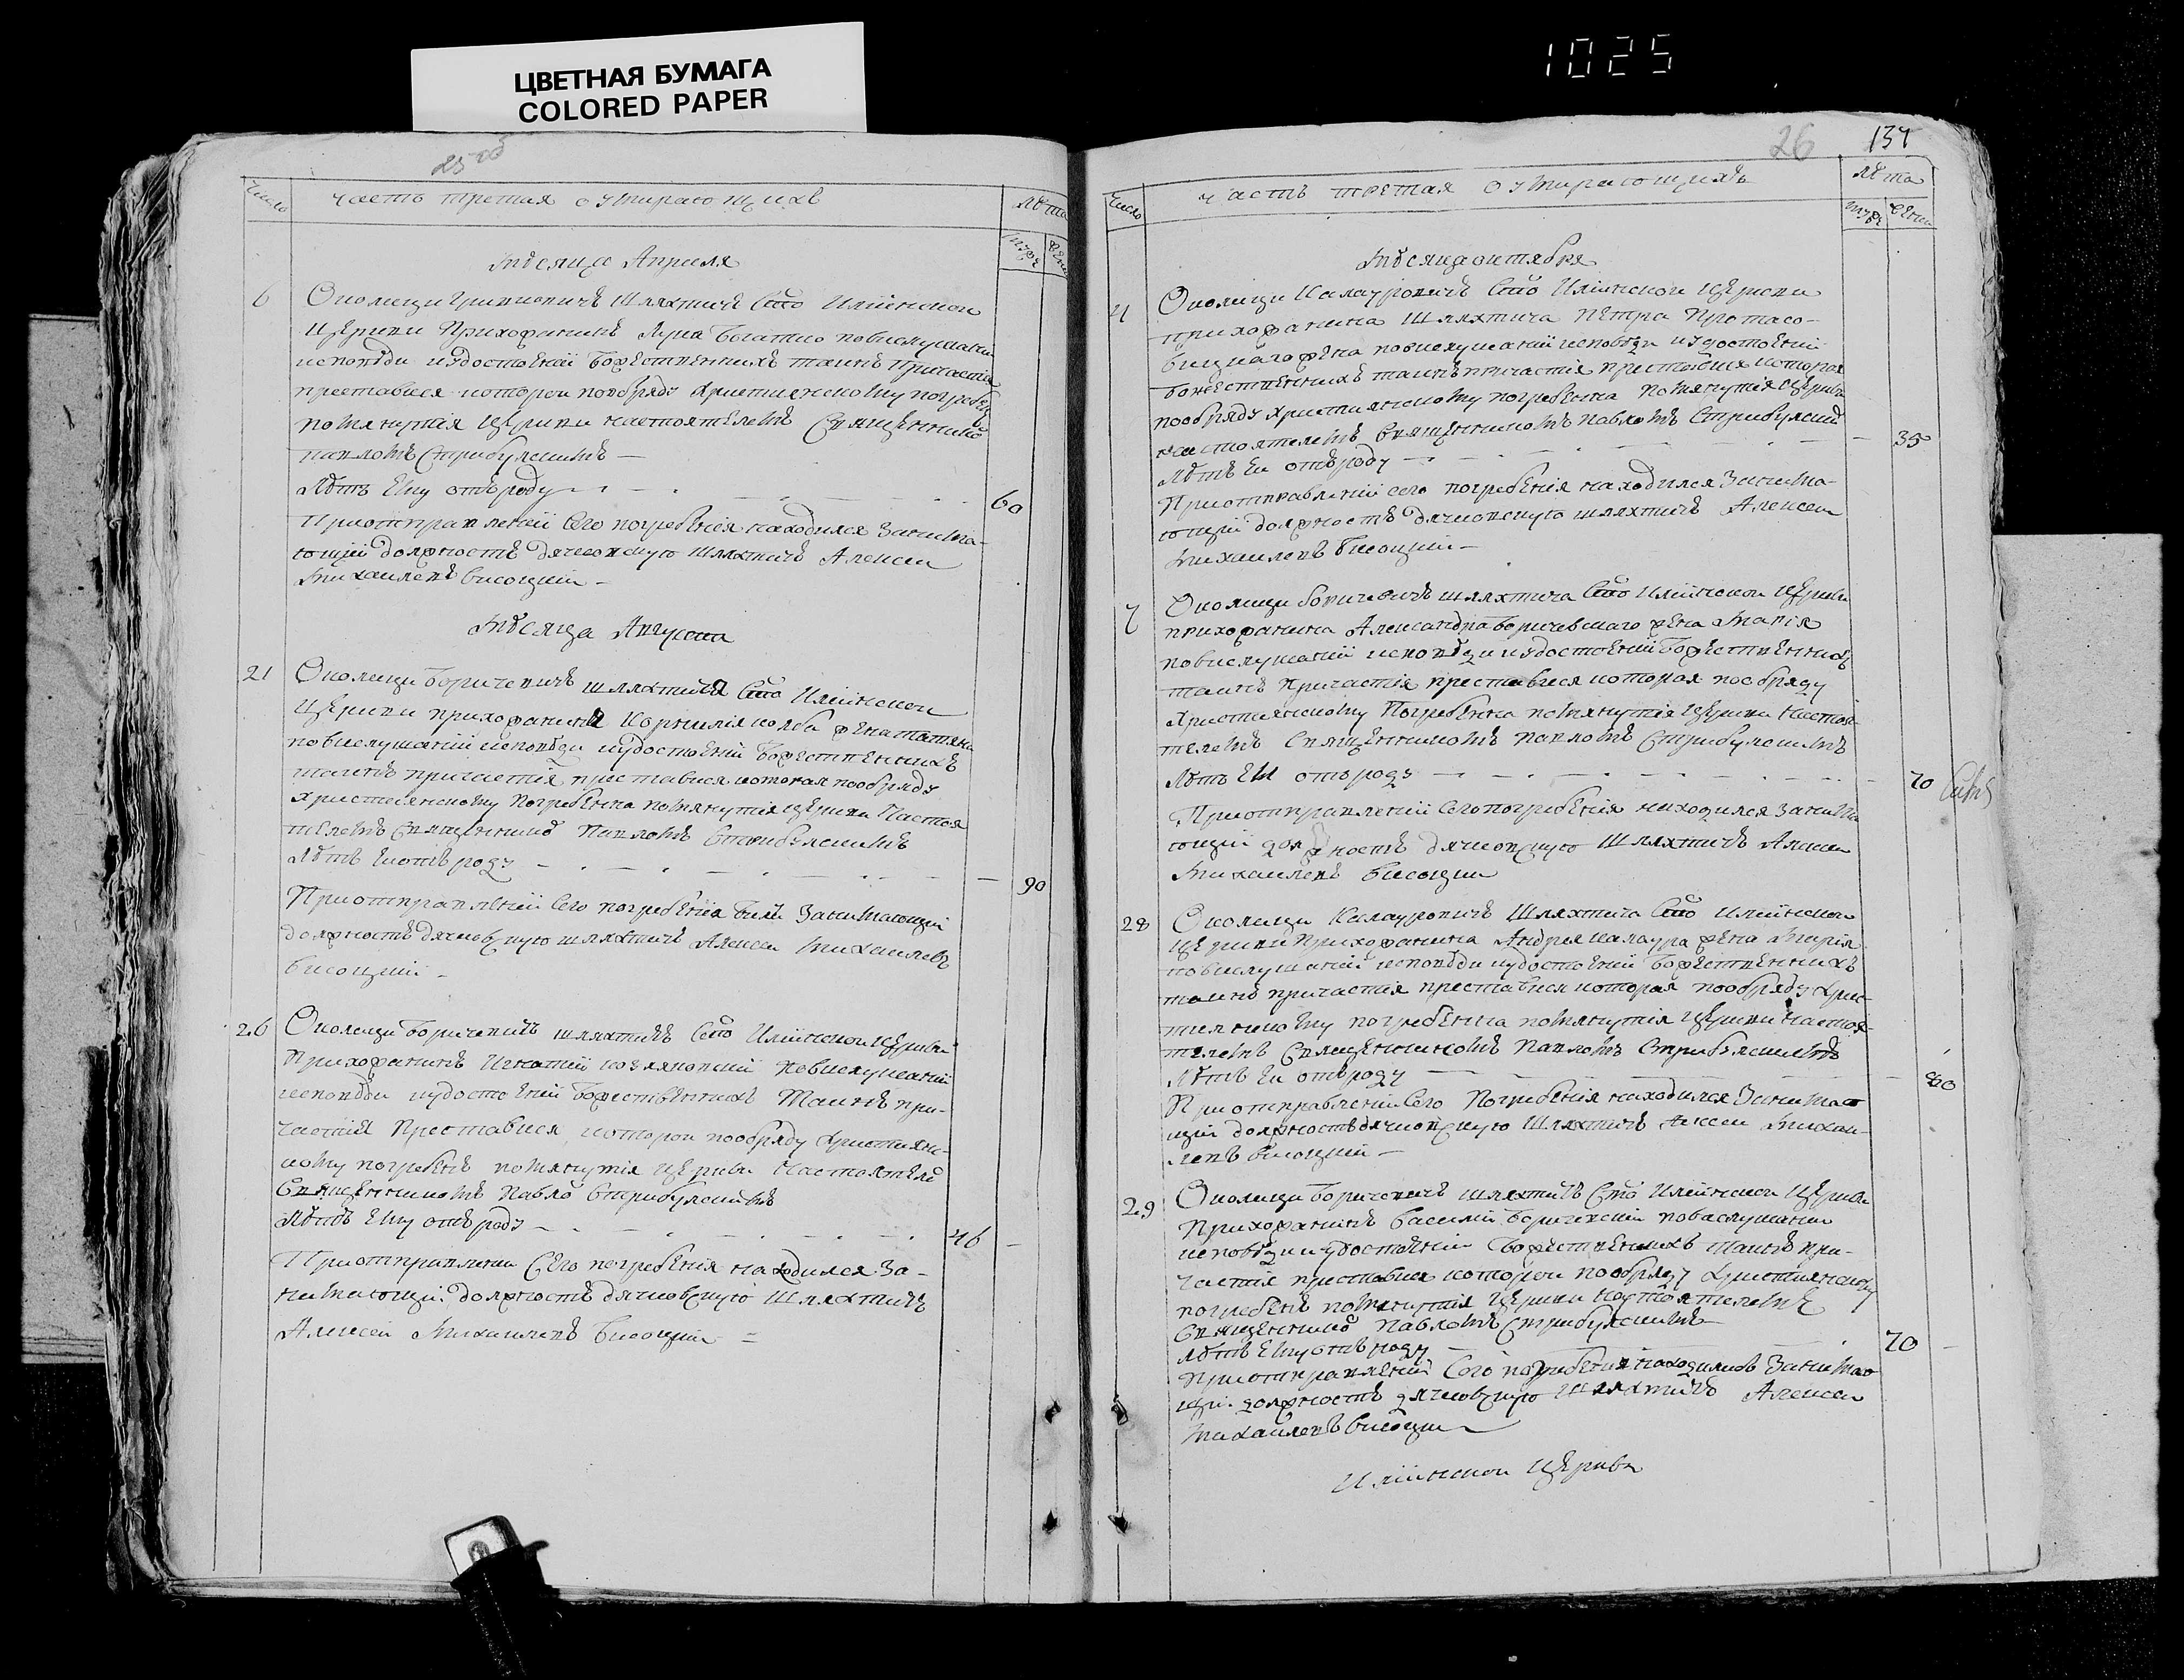 ЦВЕТНАЯ БУМАГА
COLORED PAPER
1025
25 об
Число
часть третая о умирающихъ
Лѣта
муже
женс
Мѣсяца Априля
6
Околици Грицковичъ шляхтичъ Свто Илiинской
Церкви Прихожанинъ Лука по вислушанiи
исповѣди и удостоенiи Божественнихъ таинъ Причастiя
преставися которои пообряду християнскому погребен
помянутiя Церкви настоятелемъ Священнико
павломъ Стрибулскимъ
Лѣтъ Ему отъ роду
60
При отправленiи Сего погребенiя находился Занима-
ющiи должность дячковскую шляхтичъ Алексеи
Михаилевъ Висоцкiи
Мѣсяца Августа
21
Околици Боричевичъ шляхтича Свто Илiинской
Церкви прихожанина Корнилiя жена татяна
повислушанiи исповѣди иудостоенiи Божественнихъ
таинъ причастiя преставися которая пообряду
християнскому погребенна помянутiя Церкви Настоя
телемъ Священнико Павломъ Стрибулскимъ
Лѣтъ Ей отъ роду
90
При отправленiи Сего погребенiя билъ Занимающiи
должность дячковскую шляхтичъ Алексеи Михаилевъ
Висоцкiи
26
Околици Боричевичъ шляхтичъ Свто Илiинской Церкви
Прихожанинъ Игнатiи повислушанiи
исповѣди иудостоенiи Божественнихъ Таинъ при-
частiя Преставися которои пообряду християнс-
кому погребенъ помянутiя Церкви Настоятеле
Священникомъ Павло Стрибулскимъ
Лѣтъ Ему отъ роду
46
При отправленiи Сего погребенiя находился За-
нимающiи должность дячковскую шляхтичъ
Алексеи Михаилевъ Висоцкiи
26
137
Число
часть третая о умирающихъ
Лѣта
муже
женс
Мѣсяца октября
4
Околици Калауровичъ Свто Илiинской Церкви
прихожанина шляхтича Петра Протасо-
вицкаго жена повислушанiи исповѣди иудостоенiи
божественнихъ таинъ причастiя преставися которая
пообряду християнскому погребенна помянутiя Церкви
настоятелемъ Священникомъ Павломъ Стрибулским
Лѣтъ Ей отъ роду
35
При отправленiи сего погребенiя находился Занима-
ющiи должность дячковскую шляхтичъ Алексеи
Михаилевъ Висоцкiи
7
Околици боричевичъ шляхтича Свто Илiинской Церкви
прихожанина Александра Боричевскаго жена Марiя
повислушанiи исповѣди иудостоенiи Божественнихъ
таинъ причастiя преставися которая пообряду
Християнскому Погребенна помянутiя Церкви Настоя
телемъ Священникомъ Павломъ Стрибулскимъ
Лѣтъ Ей отъ роду
70
При отправленiи Сего погребенiя находился Занима
ющiи должность дячковскую шляхтичъ Алексеи
Михаилевъ Висоцкiи
28
Околици Калауровичъ Шляхтича Свто Илiинской
Церкви Прихожанина Андрея калаура жена Марiя
повислушанiи исповѣди иудостоенiи Божественнихъ
таинъ причастiя преставися которая пообряду Хрис-
тиянскому погребенна помянутiя Церкви настоя-
телемъ Священникомъ Павломъ Стрибулскимъ
Лѣтъ Ей отъ роду
80
При отправленiи Сего Погребенiя находился Занимаю
щiи должность дячковскую Шляхтичъ Алексеи Михаи-
левъ Висоцкiи
29
Околици Боричевичъ шляхтичъ Свто Илiинской Церкви
Прихожанинъ Василiи Боричевскiи повислушанiи
исповѣди иудостоенiи Божественнихъ таинъ при-
частiя преставися которои пообряду Християнскому
погребенъ помянутiя Церкви Настоятелемъ
Священнико Павломъ Стрибулскимъ
Лѣтъ Ему отъ роду
70
При отправленiи Сего погребенiя находился Занимаю
щiи должность дячковскую шляхтичъ Алексеи
Михаилевъ Висоцкiи
Илiинской Церкви